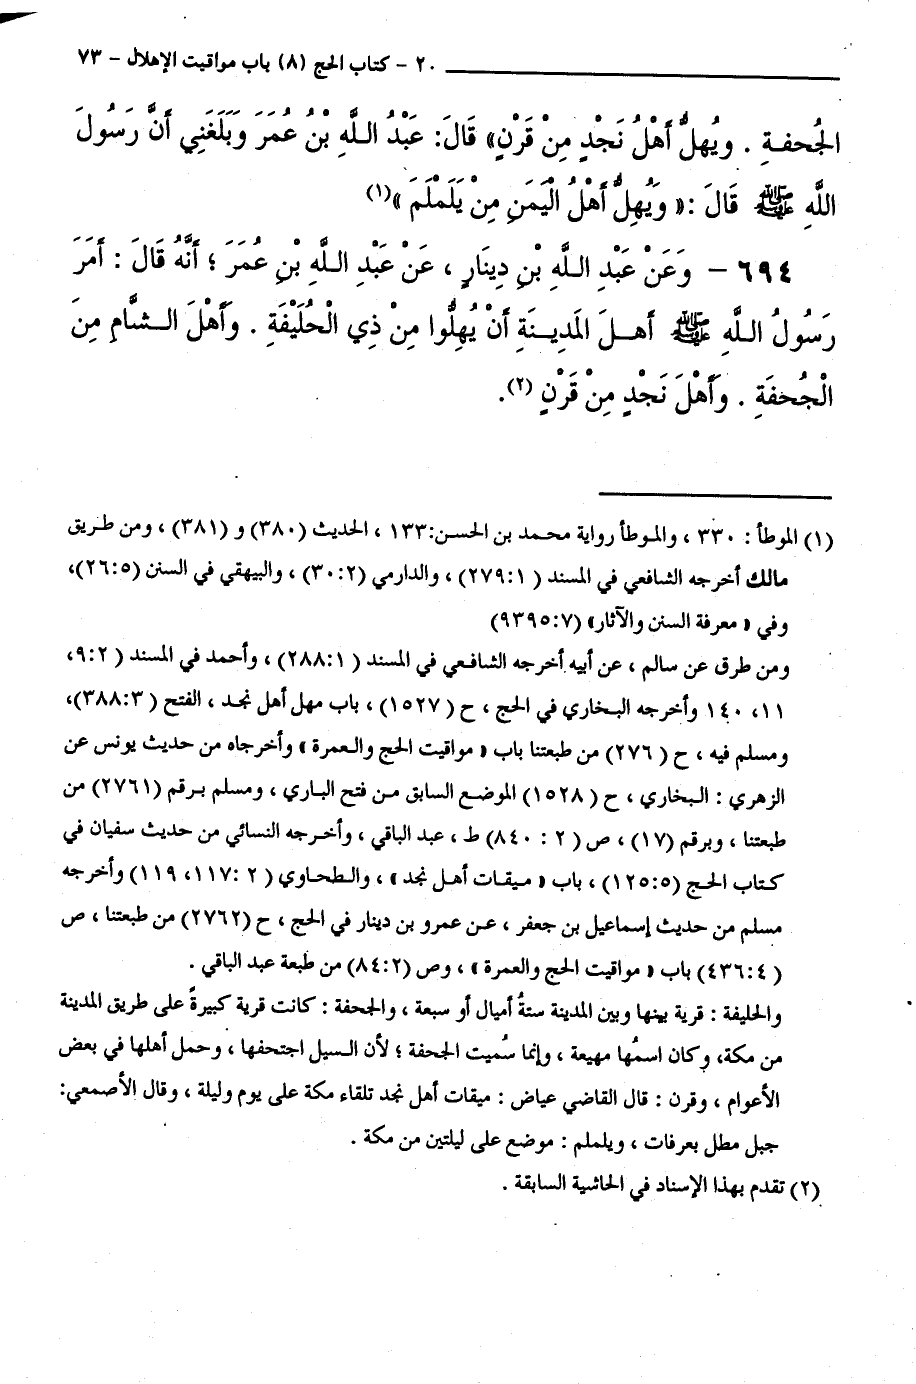 ٢٠ - كتاب الحج (٨) باب مواقيت الإهلال - ٧٣
الجُحفةِ . ويُهلُّ أَهْلُ نَجْدٍ مِنْ قَرْنٍ» قَالَ: عَبْدُ اللَّهِ بْنُ عُمَرَ وَبَلَغَنِي أَنَّ رَسُولَ
اللَّهِ ﷺ قَالَ :« وَيُهِلُّ أَهْلُ الْيَمَنِ مِنْ يَلَمْلَمَ »(١)
٦٩٤ - وَعَنْ عَبْدِ اللَّهِ بْنِ دِينَارٍ ، عَنْ عَبْدِ اللَّهِ بْنِ عُمَرَ ؛ أَنَّهُ قَالَ : أَمَرَ
رَسُولُ اللَّهِ ﷺ أَهلَ المَدِينَةِ أَنْ يُهِلُّوا مِنْ ذِي الْحُلَيْفَةِ . وأَهْلَ الشَّامِ مِنَ
الْجُحفَةِ . وَأَهْلَ نَجْدٍ مِنْ قَرْنٍ (٢).
(١) الموطأ : ٣٣٠ ، والموطأ رواية محمد بن الحسن:١٣٣ ، الحديث (٣٨٠) و (٣٨١) ، ومن طريق
مالك أخرجه الشافعي في المسند ( ٢٧٩:١) ، والدارمي (٣٠:٢) ، والبيهقي في السنن (٢٦:٥)،
وفي « معرفة السنن والآثار» (٩٣٩٥:٧)
ومن طرق عن سالم ، عن أبيه أخرجه الشافعي في المسند ( ٢٨٨:١) ، وأحمد في المسند ( ٩:٢،
١١، ١٤٠ وأخرجه البخاري في الحج ، ح ( ١٥٢٧) ، باب مهل أهل نجد ، الفتح ( ٣٨٨:٣)،
ومسلم فيه ، ح ( ٢٧٦) من طبعتنا باب « مواقيت الحج والعمرة » وأخرجاه من حديث يونس عن
الزهري : البخاري ، ح ( ١٥٢٨) الموضع السابق من فتح الباري ، ومسلم برقم (٢٧٦١) من
طبعتنا ، وبرقم (١٧) ، ص ( ٢ : ٨٤٠) ط ، عبد الباقي ، وأخرجه النسائي من حديث سفيان في
كتاب الحج (١٢٥:٥) ، باب « ميقات أهل نجد » ، والطحاوي ( ٢ :١١٧، ١١٩) وأخرجه
مسلم من حديث إسماعيل بن جعفر ، عن عمرو بن دينار في الحج ، ح (٢٧٦٢) من طبعتنا ، ص
( ٤٣٦:٤) باب « مواقيت الحج والعمرة » ، وص (٨٤:٢) من طبعة عبد الباقي .
والحليفة : قرية بينها وبين المدينة ستةُ أميال أو سبعة ، والجحفة : كانت قرية كبيرةً على طريق المدينة
من مكة، وكان اسمُها مهيعة ، وإنما سُميت الجحفة ؛ لأن السيل اجتحفها ، وحمل أهلها في بعض
الأعوام ، وقرن : قال القاضي عياض : ميقات أهل نجد تلقاء مكة على يوم وليلة ، وقال الأصمعي:
جبل مطل بعرفات ، ويلملم : موضع على ليلتين من مكة .
(٢) تقدم بهذا الإسناد في الحاشية السابقة .